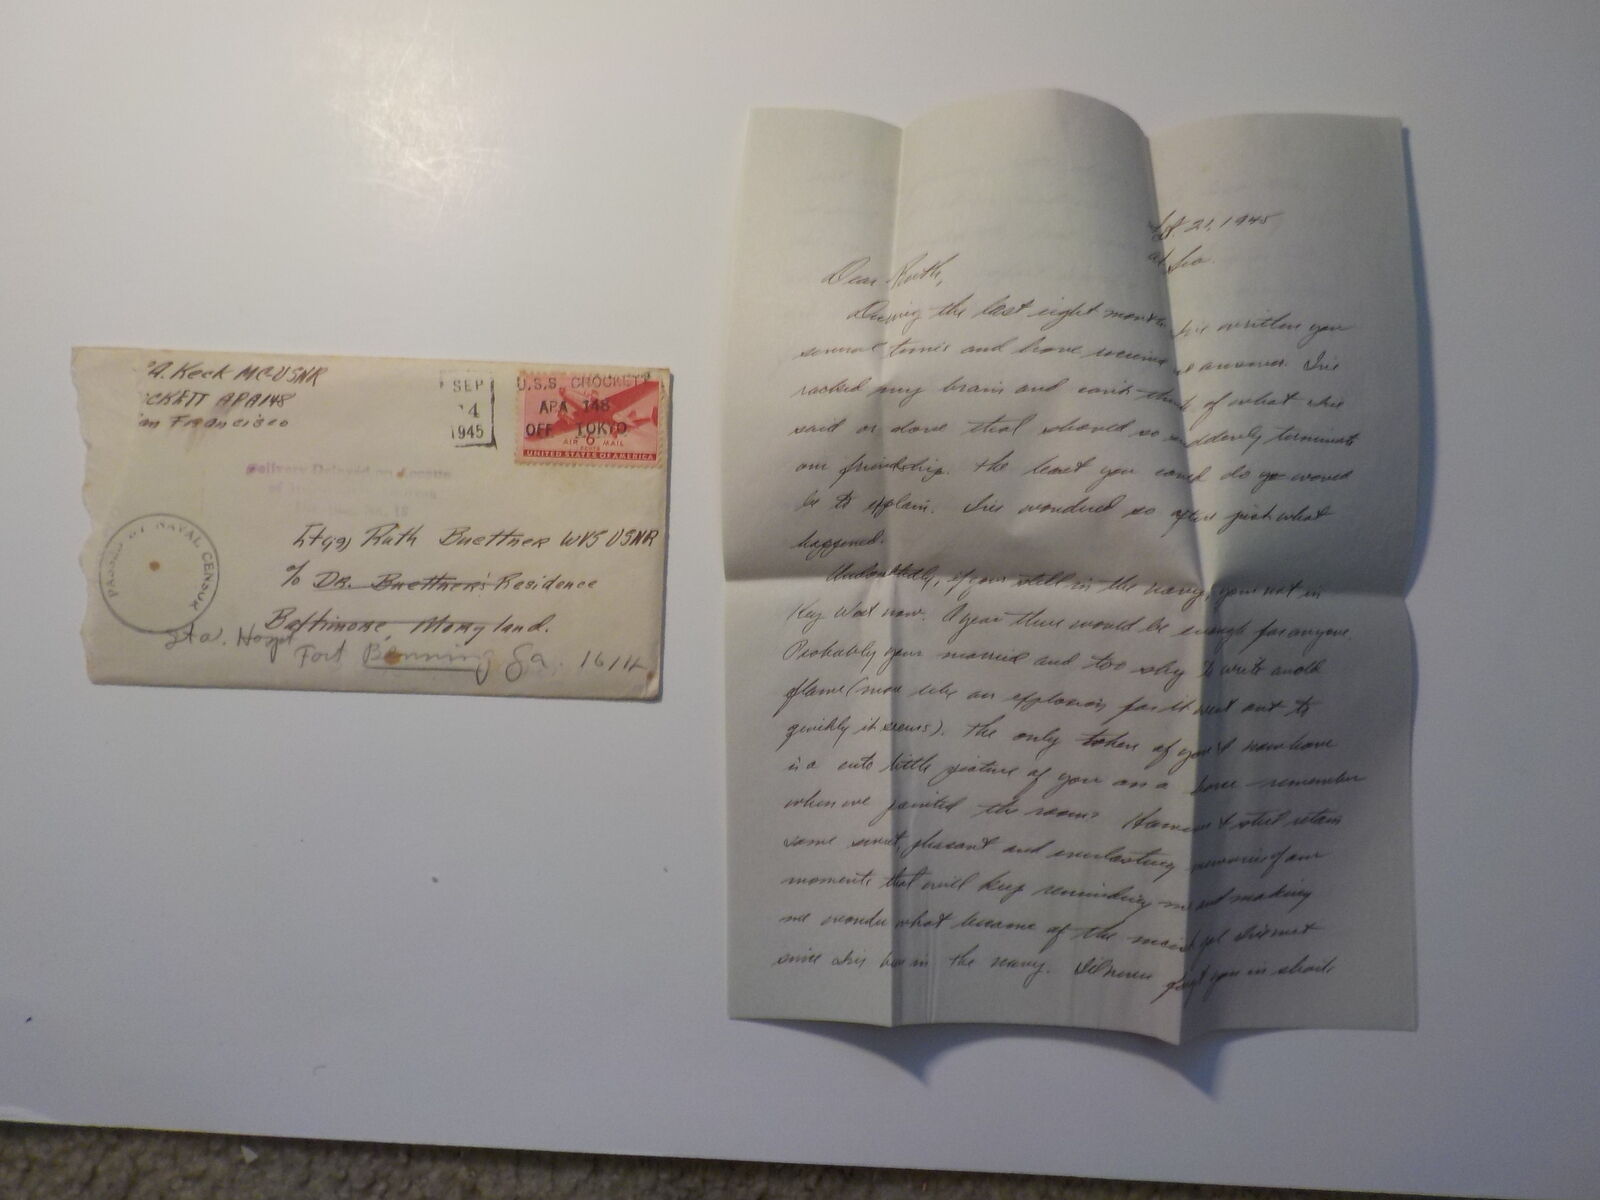 A. Keck MC-USNR
CKETT APA148
an Francisco
SEP
4
1945
U.S.S. CROCKETT
APA 148
OFF TOKYO
6
AIR CENTS MAIL
UNITED STATES OF AMERICA
Delivery Delayed on
PASSED BY NAVAL CENSOR
Lt(jg) Ruth Buettner WVS USNR
% DR. Buettner's Residence
Baltimore, Maryland.
Sta. Hospt
Fort Benning Ga.
21, 1945
at Sea.
Dear Ruth,
During the last eight months I've written you
several times and have received no answer. I've
racked my brain and can't think of what I've
said or done that should so suddenly terminate
our friendship. The least you could do would
be to explain. I've wondered so often just what
happened.
Undoubtedly, if your still in the navy, your not in
Key West now. A year there would be enough for anyone.
Probably your married and too shy to write an old
flame (more like an explosion for it went out to
quickly it seems). The only token of you I now have
is a cute little picture of you on a horse - remember
when we painted the room? However I still retain
some sweet, pleasant and everlasting memories of our
moments that will keep reminding me and making
me wonder what became of the gal I've met
since I've been in the navy. I'll never forget you in shorts